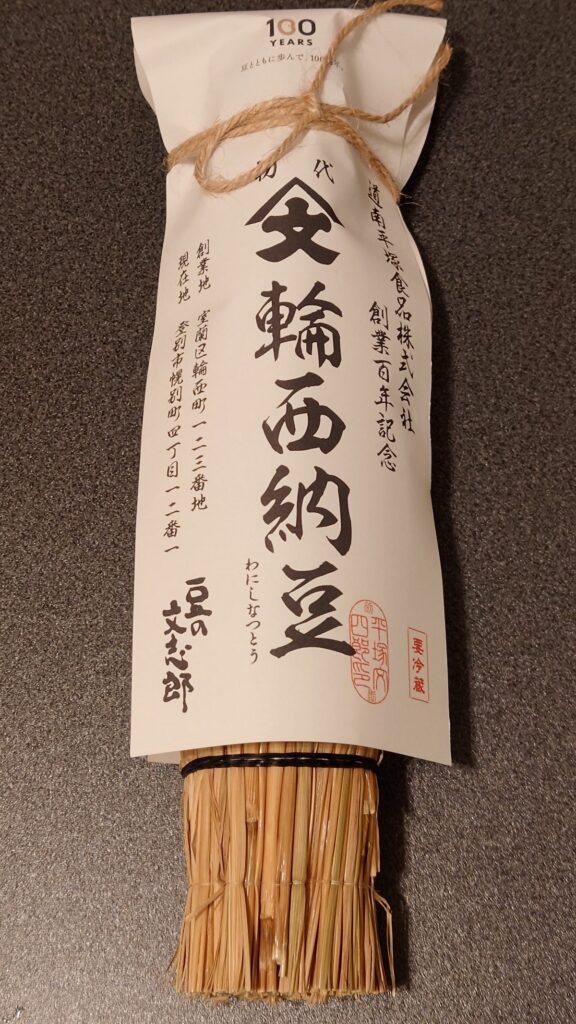 100
YEARS
豆とともに歩んで、100年。
初代
文
輪西納豆
わにしなっとう
道南平塚食品株式会社
創業百年記念
創業地 室蘭区輪西町一二三番地
現在地 登別市幌別町四丁目一二番一
豆の文志郎
要冷蔵